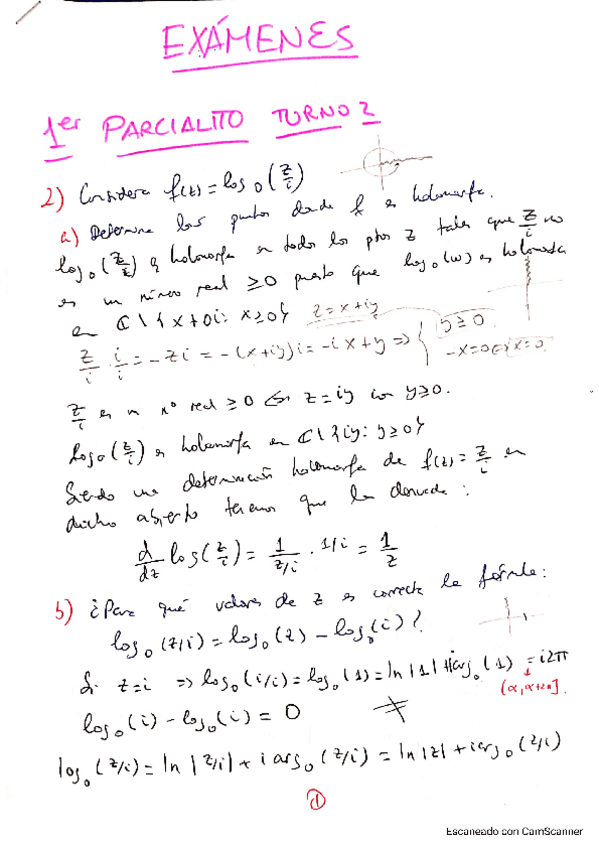 EXÁMENES
1er PARCIALITO TURNO 2
2) Considera f(z) = log₀(z/i)
a) Determina los puntos donde f es holomorfa.
log₀(z/i) es holomorfa en todos los ptos z tales que z/i no
es un número real ≥0 puesto que log₀(w) es holomorfa
en ℂ\{x+0i: x≥0} z=x+iy
z/i · i/i = -zi = -(x+iy)i = -ix+y ⇒ { y≥0 -x=0 ⇔ x=0
z/i es un nº real ≥0 ⇔ z=iy con y≥0.
log₀(z/i) es holomorfa en ℂ\{iy: y≥0}
Siendo una determinación holomorfa de f(z)=z/i en
dicho abierto tenemos que la derivada:
d/dz log(z/i) = 1/(z/i) · 1/i = 1/z
b) ¿Para qué valores de z es correcta la fórmula:
log₀(z/i) = log₀(z) - log₀(i)?
Si z=i ⇒ log₀(i/i) = log₀(1) = ln|1| + i arg₀(1) = i2π
(α, α+2π].
log₀(i) - log₀(i) = 0 ≠
log₀(z/i) = ln|z/i| + i arg₀(z/i) = ln|z| + i arg₀(z/i)
1
Escaneado con CamScanner